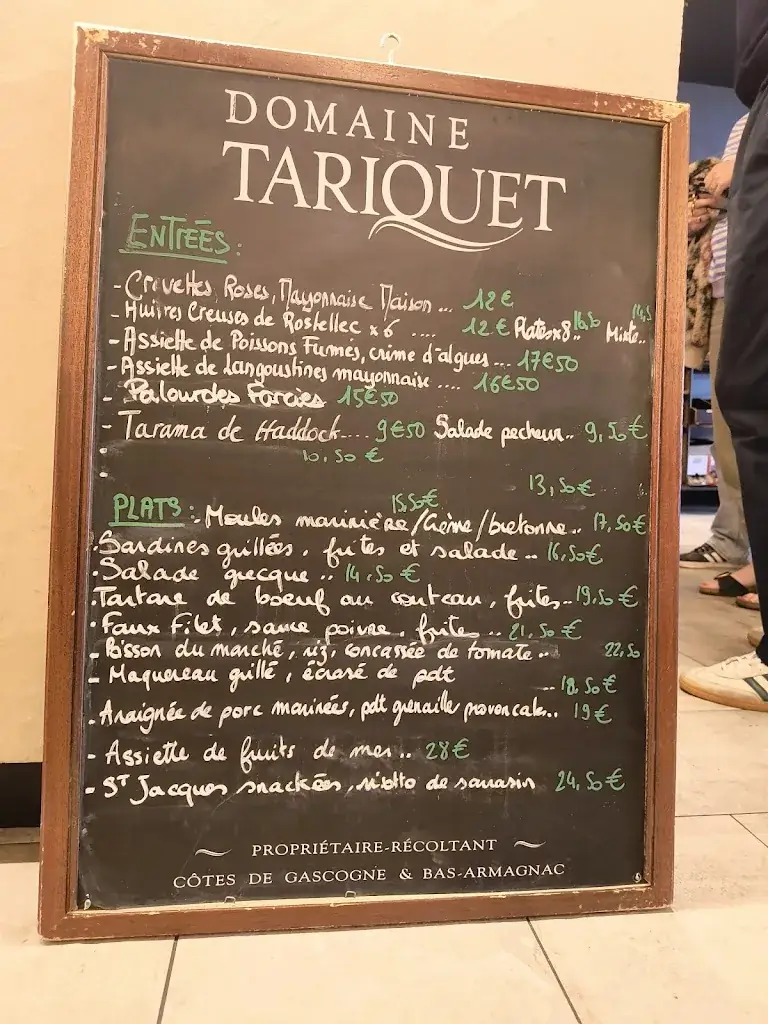 DOMAINE
TARIQUET
ENTREÉS:
- Crevettes Roses, Mayonnaise Maison... 12€
- Huitres Creuses de Rostellec x6 .... 12€ Plates x8.. 16,50 Mixte..
- Assiette de Poissons Fumés, crème d'algues... 17€50
- Assiette de Langoustines mayonnaise .... 16€50
- Palourdes Farcies 15€50
- Tarama de Haddock.... 9€50 Salade pecheur.. 9,50€
10,50€
13,50€
15,50€
PLATS: - Moules marinière/Crème/bretonne.. 17,50€
- Sardines grillées, frites et salade .. 16,50€
- Salade grecque .. 14,50€
- Tartare de boeuf au couteau, frites.. 19,50€
- Faux Filet, sauce poivre, frites .. 21,50€
- Poisson du marché, riz, concassée de tomate.. 22,50
- Maquereau grillé, écrasé de pdt
... 18,50€
- Araignée de porc marinées, pdt grenaille provencale.. 19€
- Assiette de fruits de mer.. 28€
- ST Jacques snackées, risotto de sarrasin 24,50€
PROPRIÉTAIRE-RÉCOLTANT
CÔTES DE GASCOGNE & BAS-ARMAGNAC